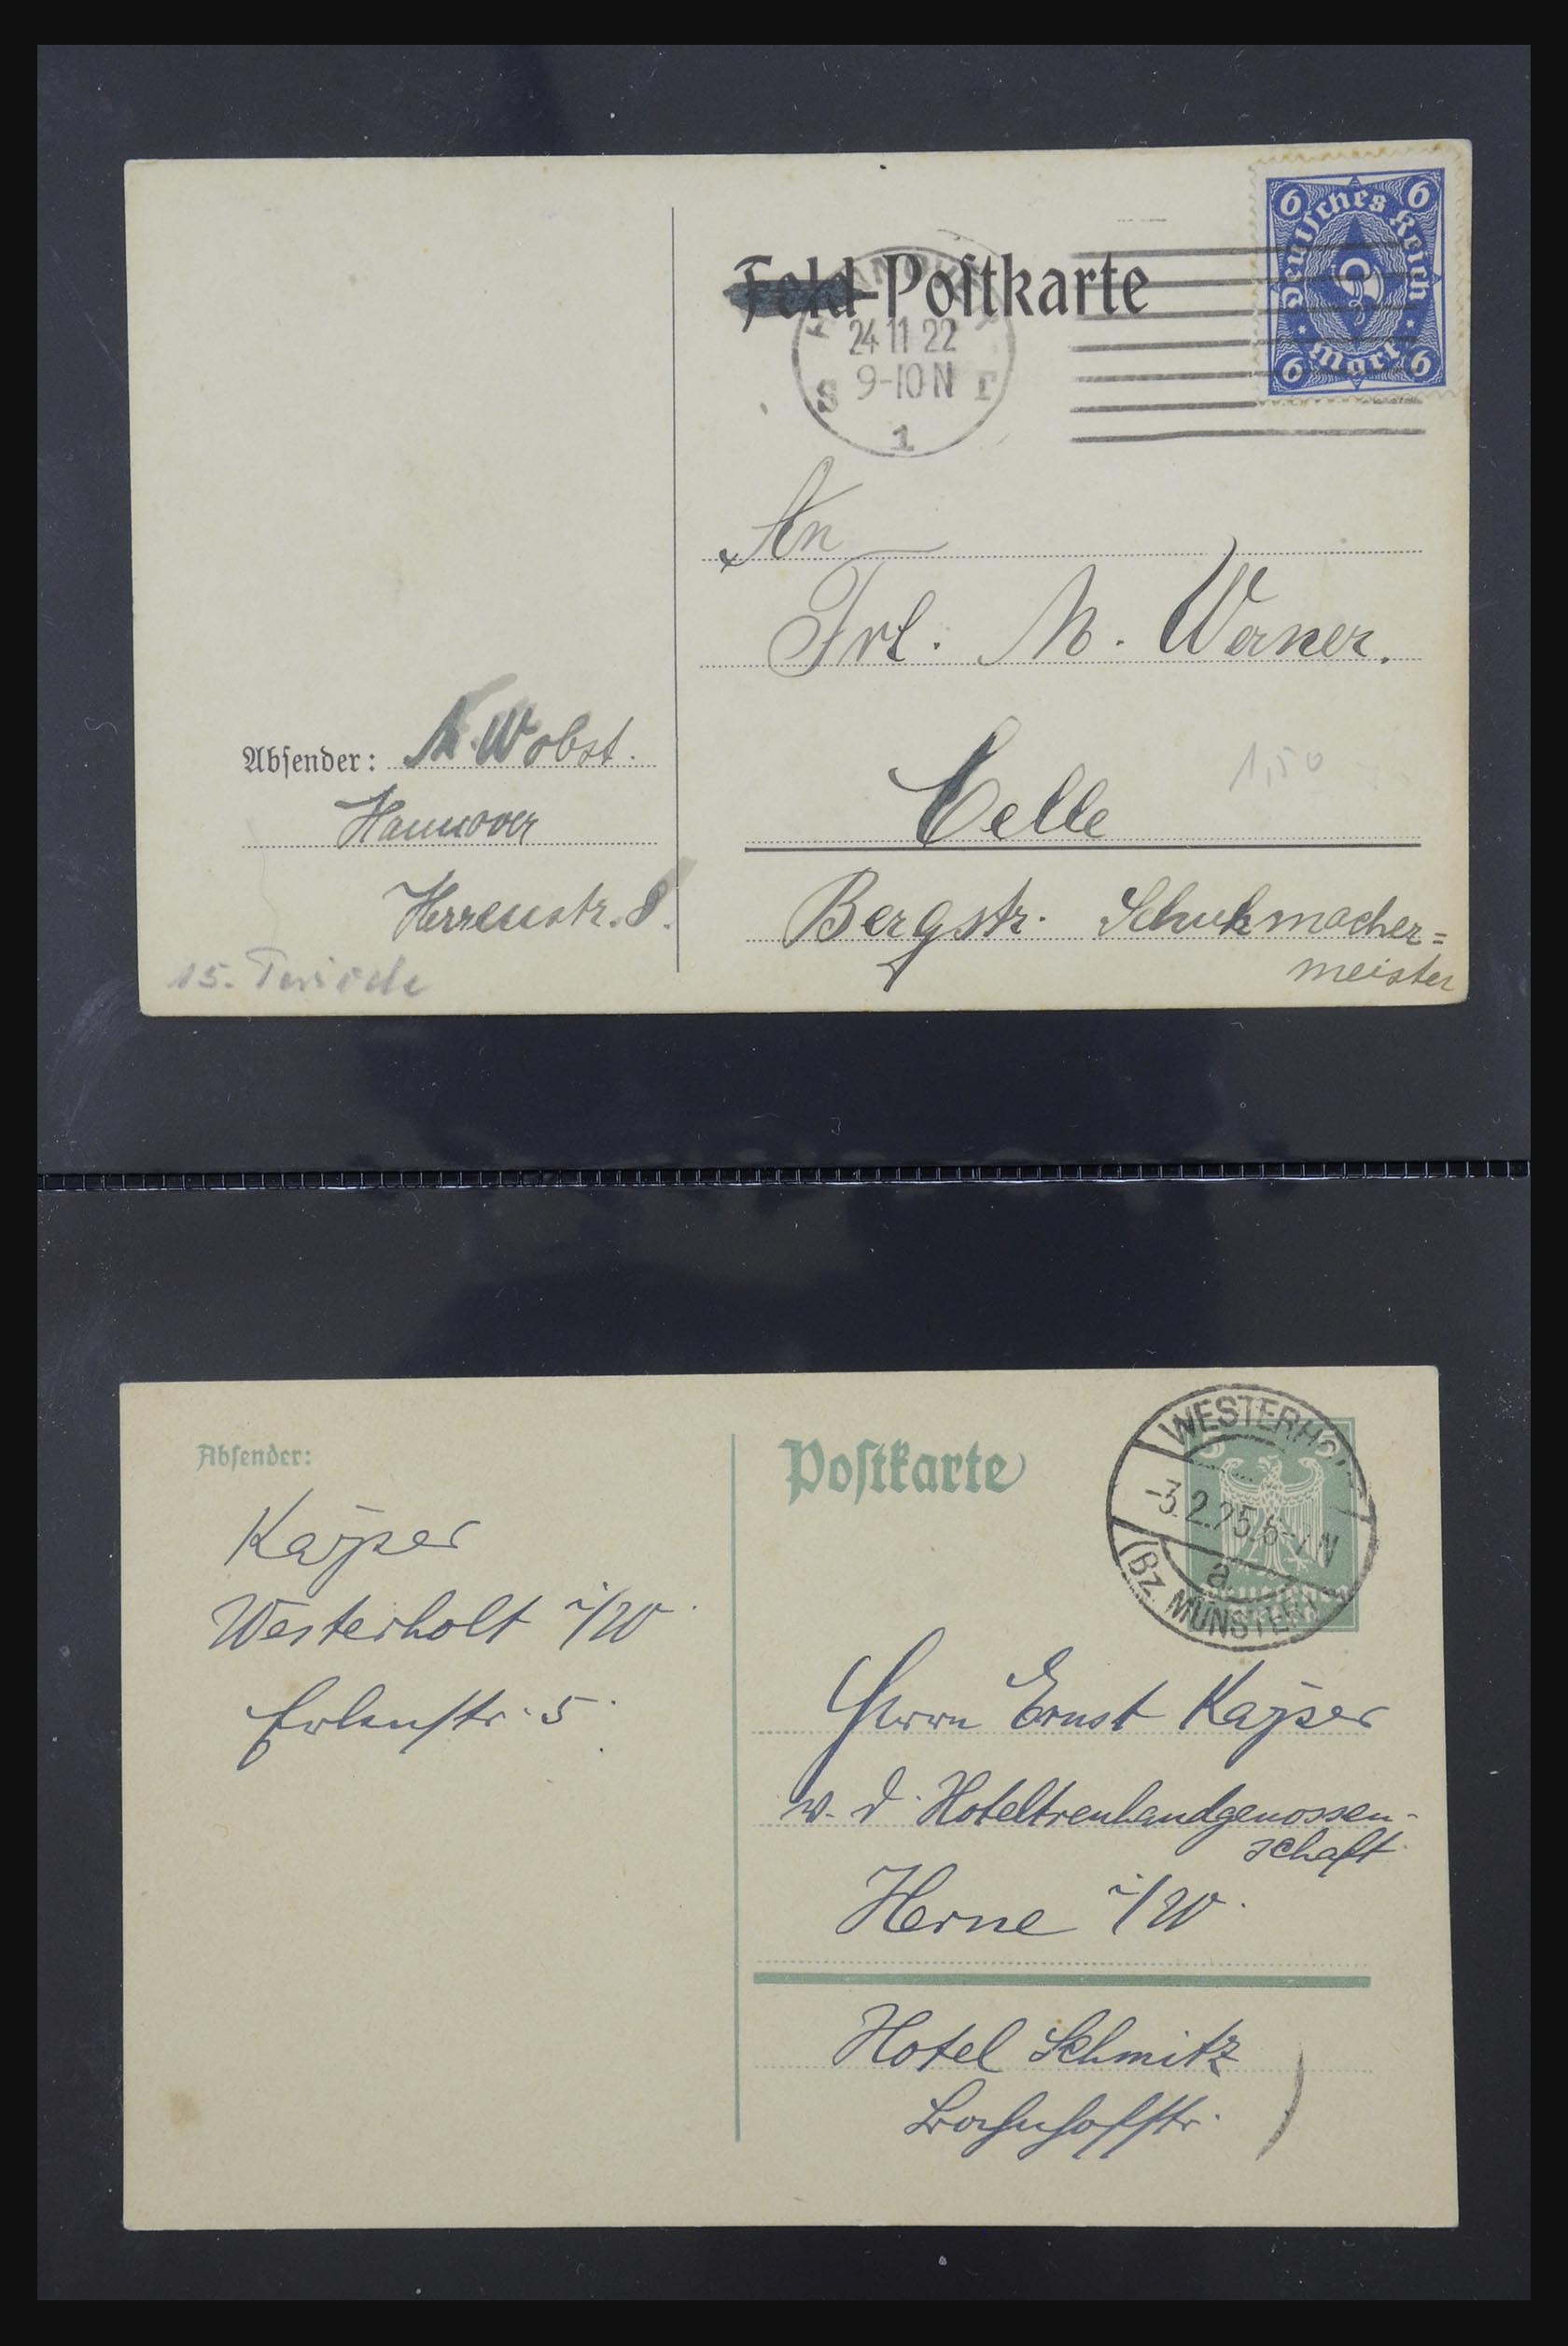 Feld-Postkarte
24 11 22
9-10 N
S
1
6 6
Deutsches Reich
6
Mark
6 6
An
Frl. M. Werner.
Celle
1,50
Bergstr. Schuhmacher=
meister
Absender: A. Wobst.
Hannover
Herrenstr. 8.
15. Periode
Absender:
Kayser
Westerholt i/W.
Erlenstr. 5.
Postkarte
WESTERHOLT
-3.2.25.6-7 N
a
(Bz. MÜNSTER)
Herrn Ernst Kayser
w. d. Hoteltreuhandgenossen-
schaft
Herne i/W.
Hotel Schmitz
Bahnhofstr.